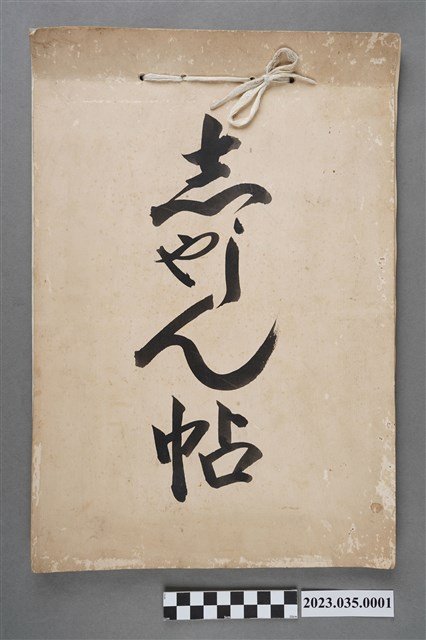 志やしん帖
2023.035.0001